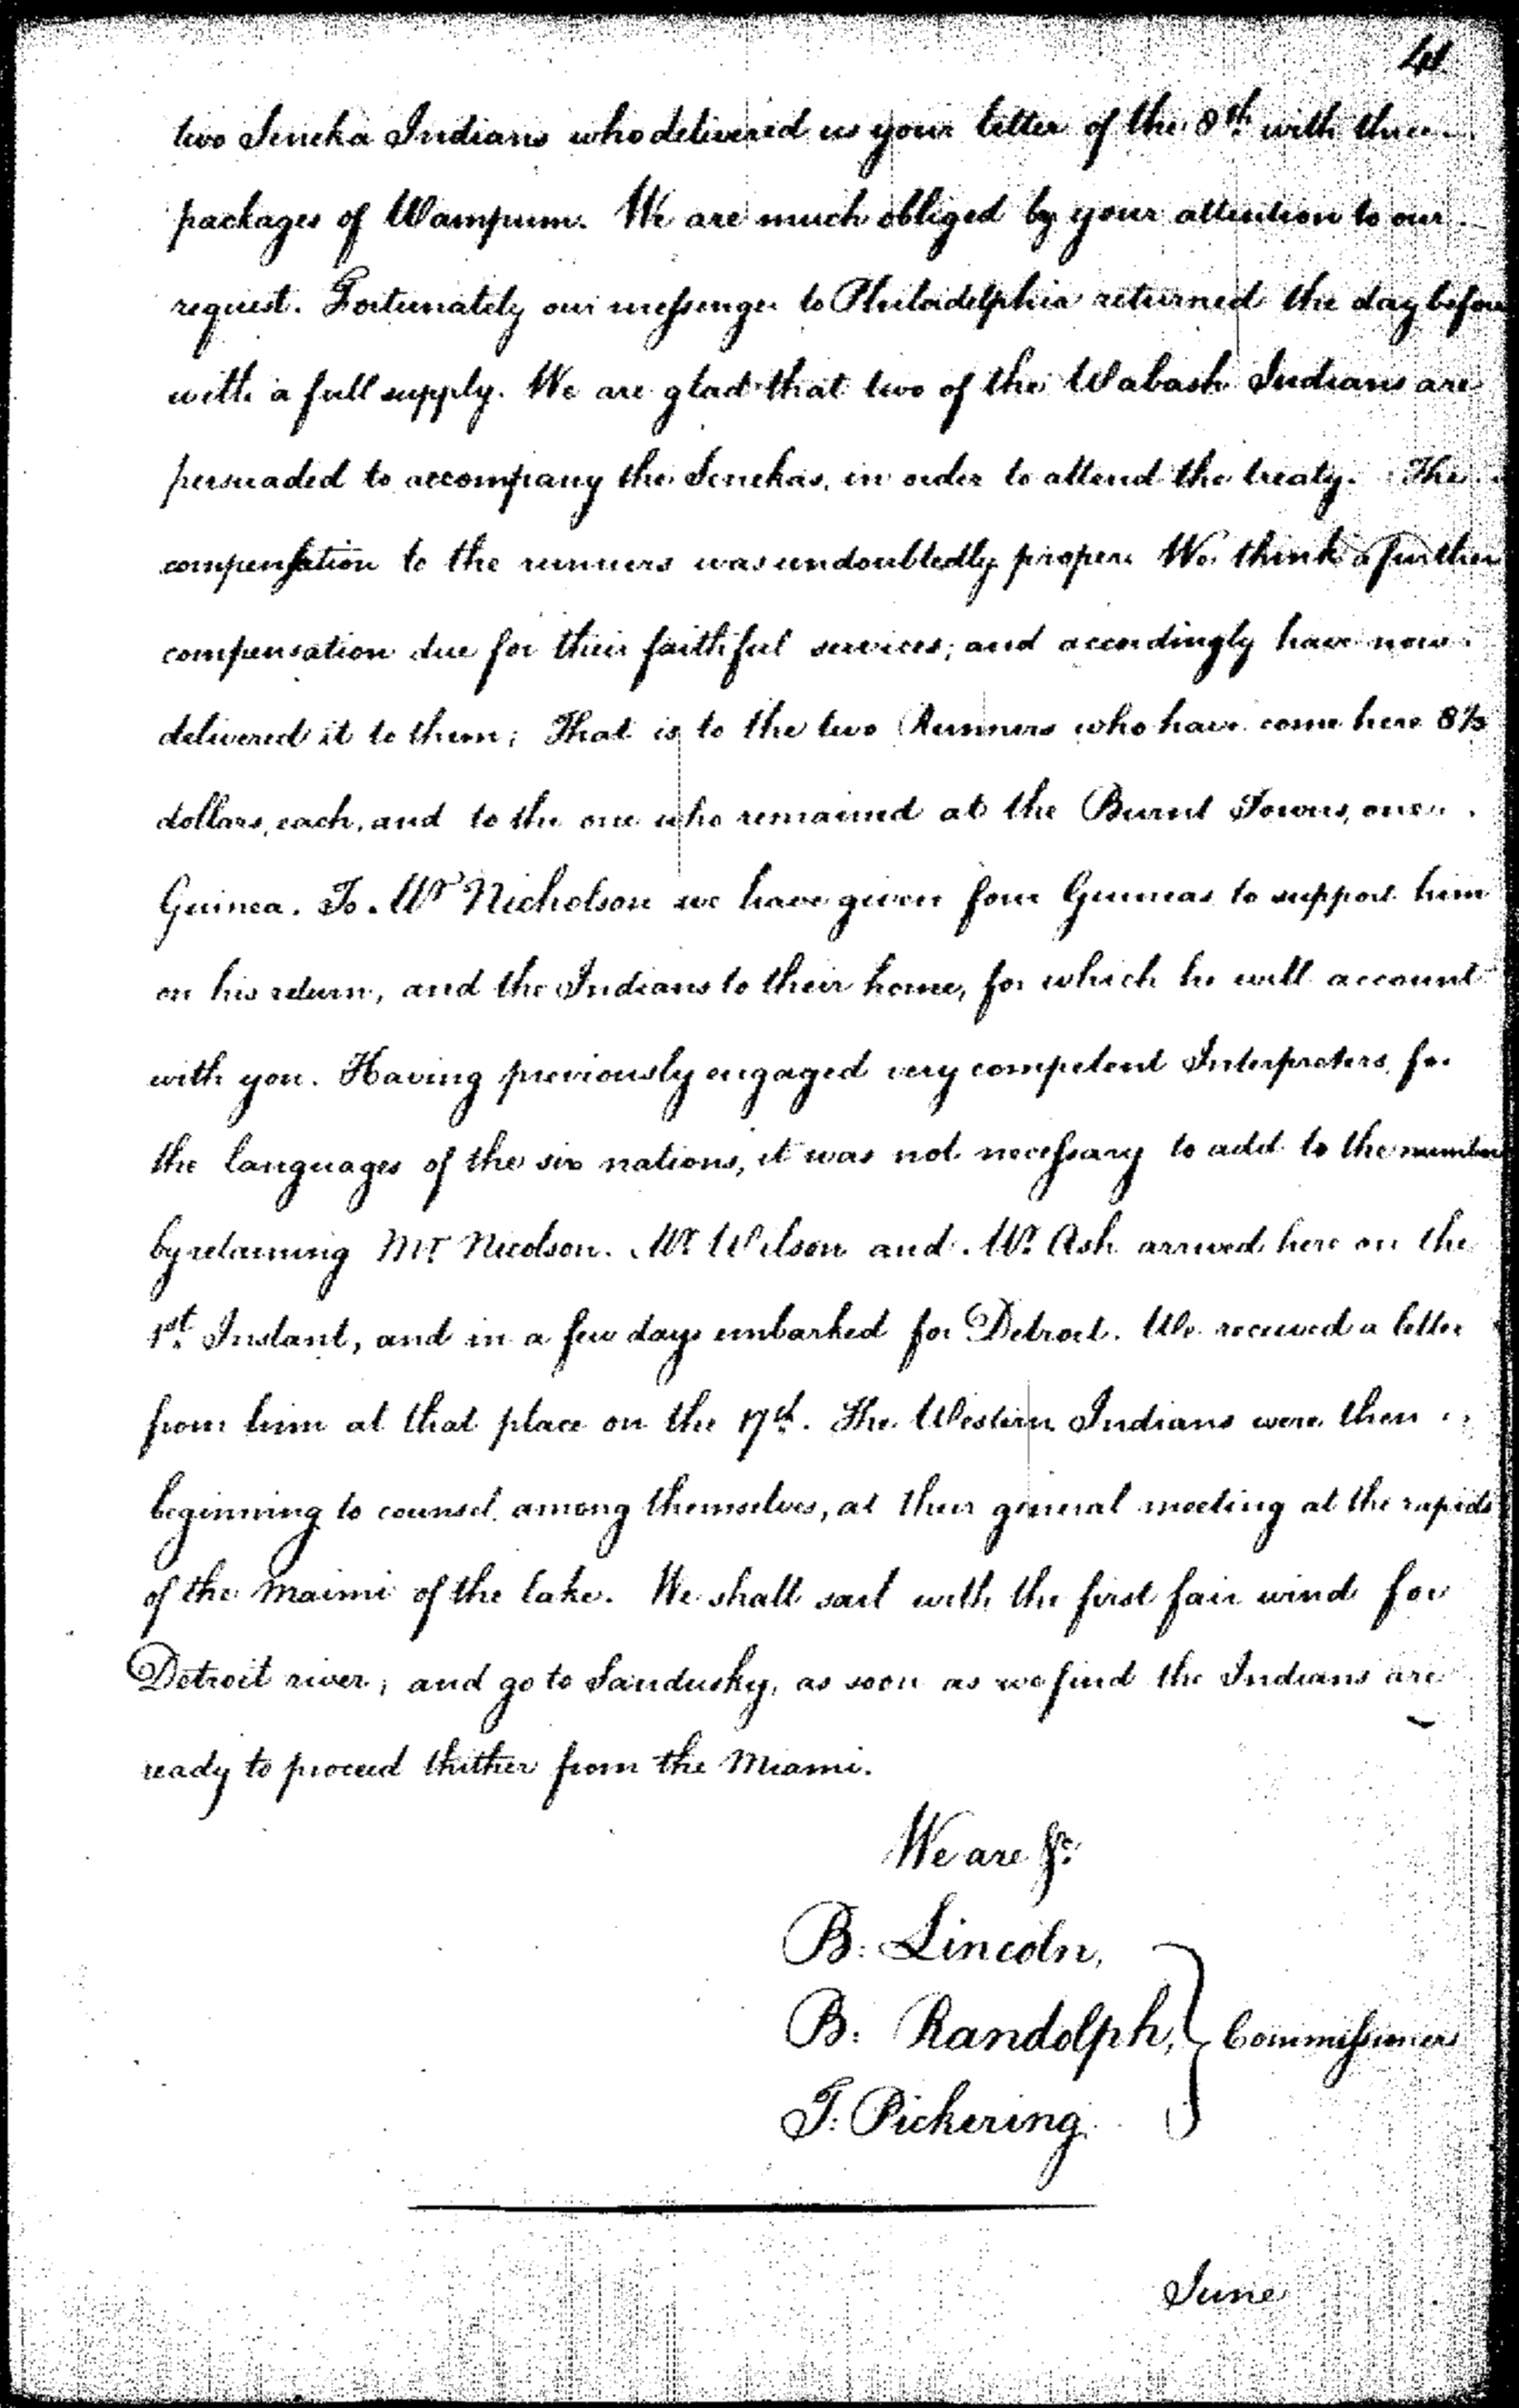 41
two Seneka Indians who delivered us your letter of the 8th with three
packages of Wampum. We are much obliged by your attention to our
request. Fortunately our messenger to Philadelphia returned the day before
with a full supply. We are glad that two of the Wabash Indians are
persuaded to accompany the Senekas, in order to attend the treaty. The
compensation to the runners was undoubtedly proper. We think a further
compensation due for their faithful services; and accordingly have now
delivered it to them; That is to the two Runners who have come here 8⅓
dollars, each, and to the one who remained at the Burnt Towns, one
Guinea. To Mr Nicholson we have given four Guineas to support him
on his return, and the Indians to their home, for which he will account
with you. Having previously engaged very competent Interpreters, for
the languages of the six nations, it was not necessary to add to the number
by retaining Mr Nicolson. Mr Wilson and Mr Ash arrived here on the
1st Instant, and in a few days embarked for Detroit. We received a letter
from him at that place on the 17th. The Western Indians were then
beginning to counsel among themselves, at their general meeting at the rapids
of the Maimi of the lake. We shall sail with the first fair wind for
Detroit river; and go to Sandusky, as soon as we find the Indians are
ready to proceed thither from the Miami.
We are &c.
B: Lincoln,
B: Randolph, } Commissioners
T: Pickering.
June